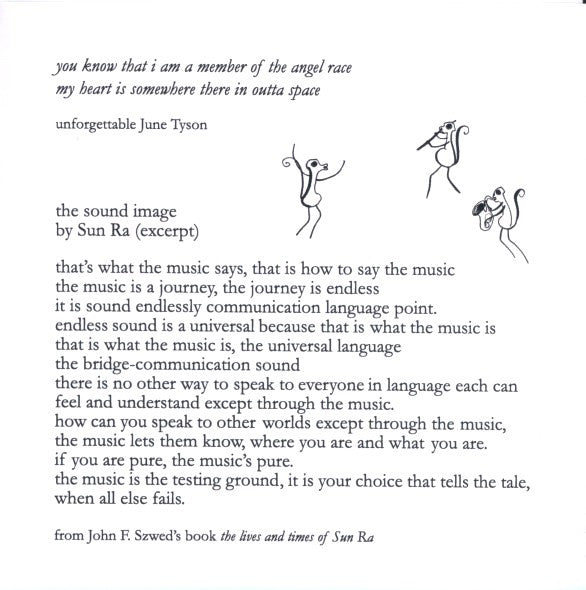 you know that i am a member of the angel race
my heart is somewhere there in outta space
unforgettable June Tyson
the sound image
by Sun Ra (excerpt)
that's what the music says, that is how to say the music
the music is a journey, the journey is endless
it is sound endlessly communication language point.
endless sound is a universal because that is what the music is
that is what the music is, the universal language
the bridge-communication sound
there is no other way to speak to everyone in language each can
feel and understand except through the music.
how can you speak to other worlds except through the music,
the music lets them know, where you are and what you are.
if you are pure, the music's pure.
the music is the testing ground, it is your choice that tells the tale,
when all else fails.
from John F. Szwed's book the lives and times of Sun Ra